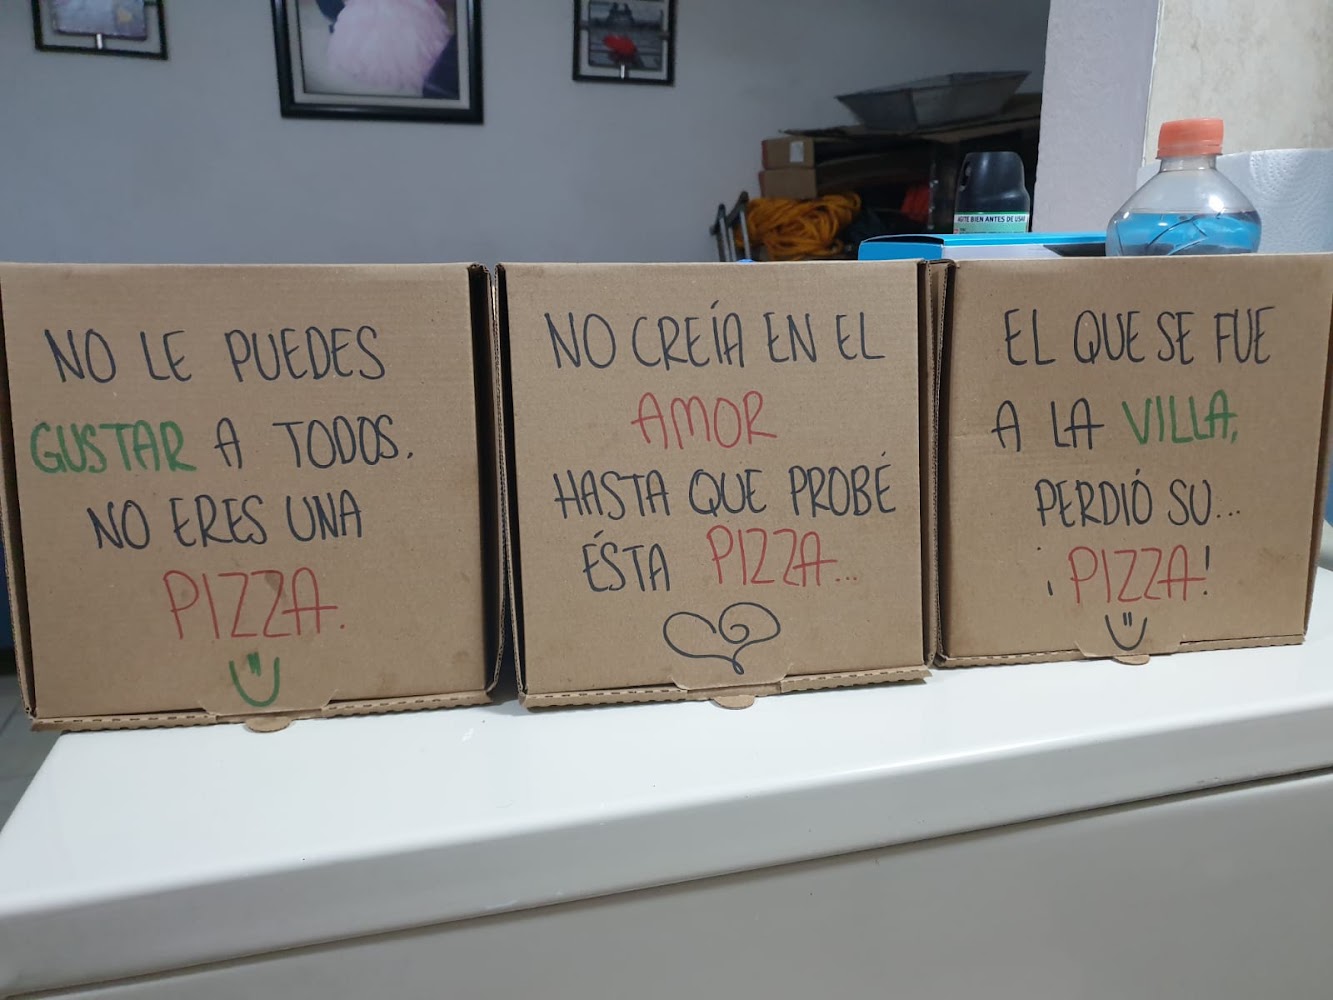 NO LE PUEDES
GUSTAR A TODOS.
NO ERES UNA
PIZZA.
NO CREÍA EN EL
AMOR
HASTA QUE PROBÉ
ÉSTA PIZZA...
EL QUE SE FUE
A LA VILLA,
PERDIÓ SU...
¡PIZZA!
AGITE BIEN ANTES DE USAR